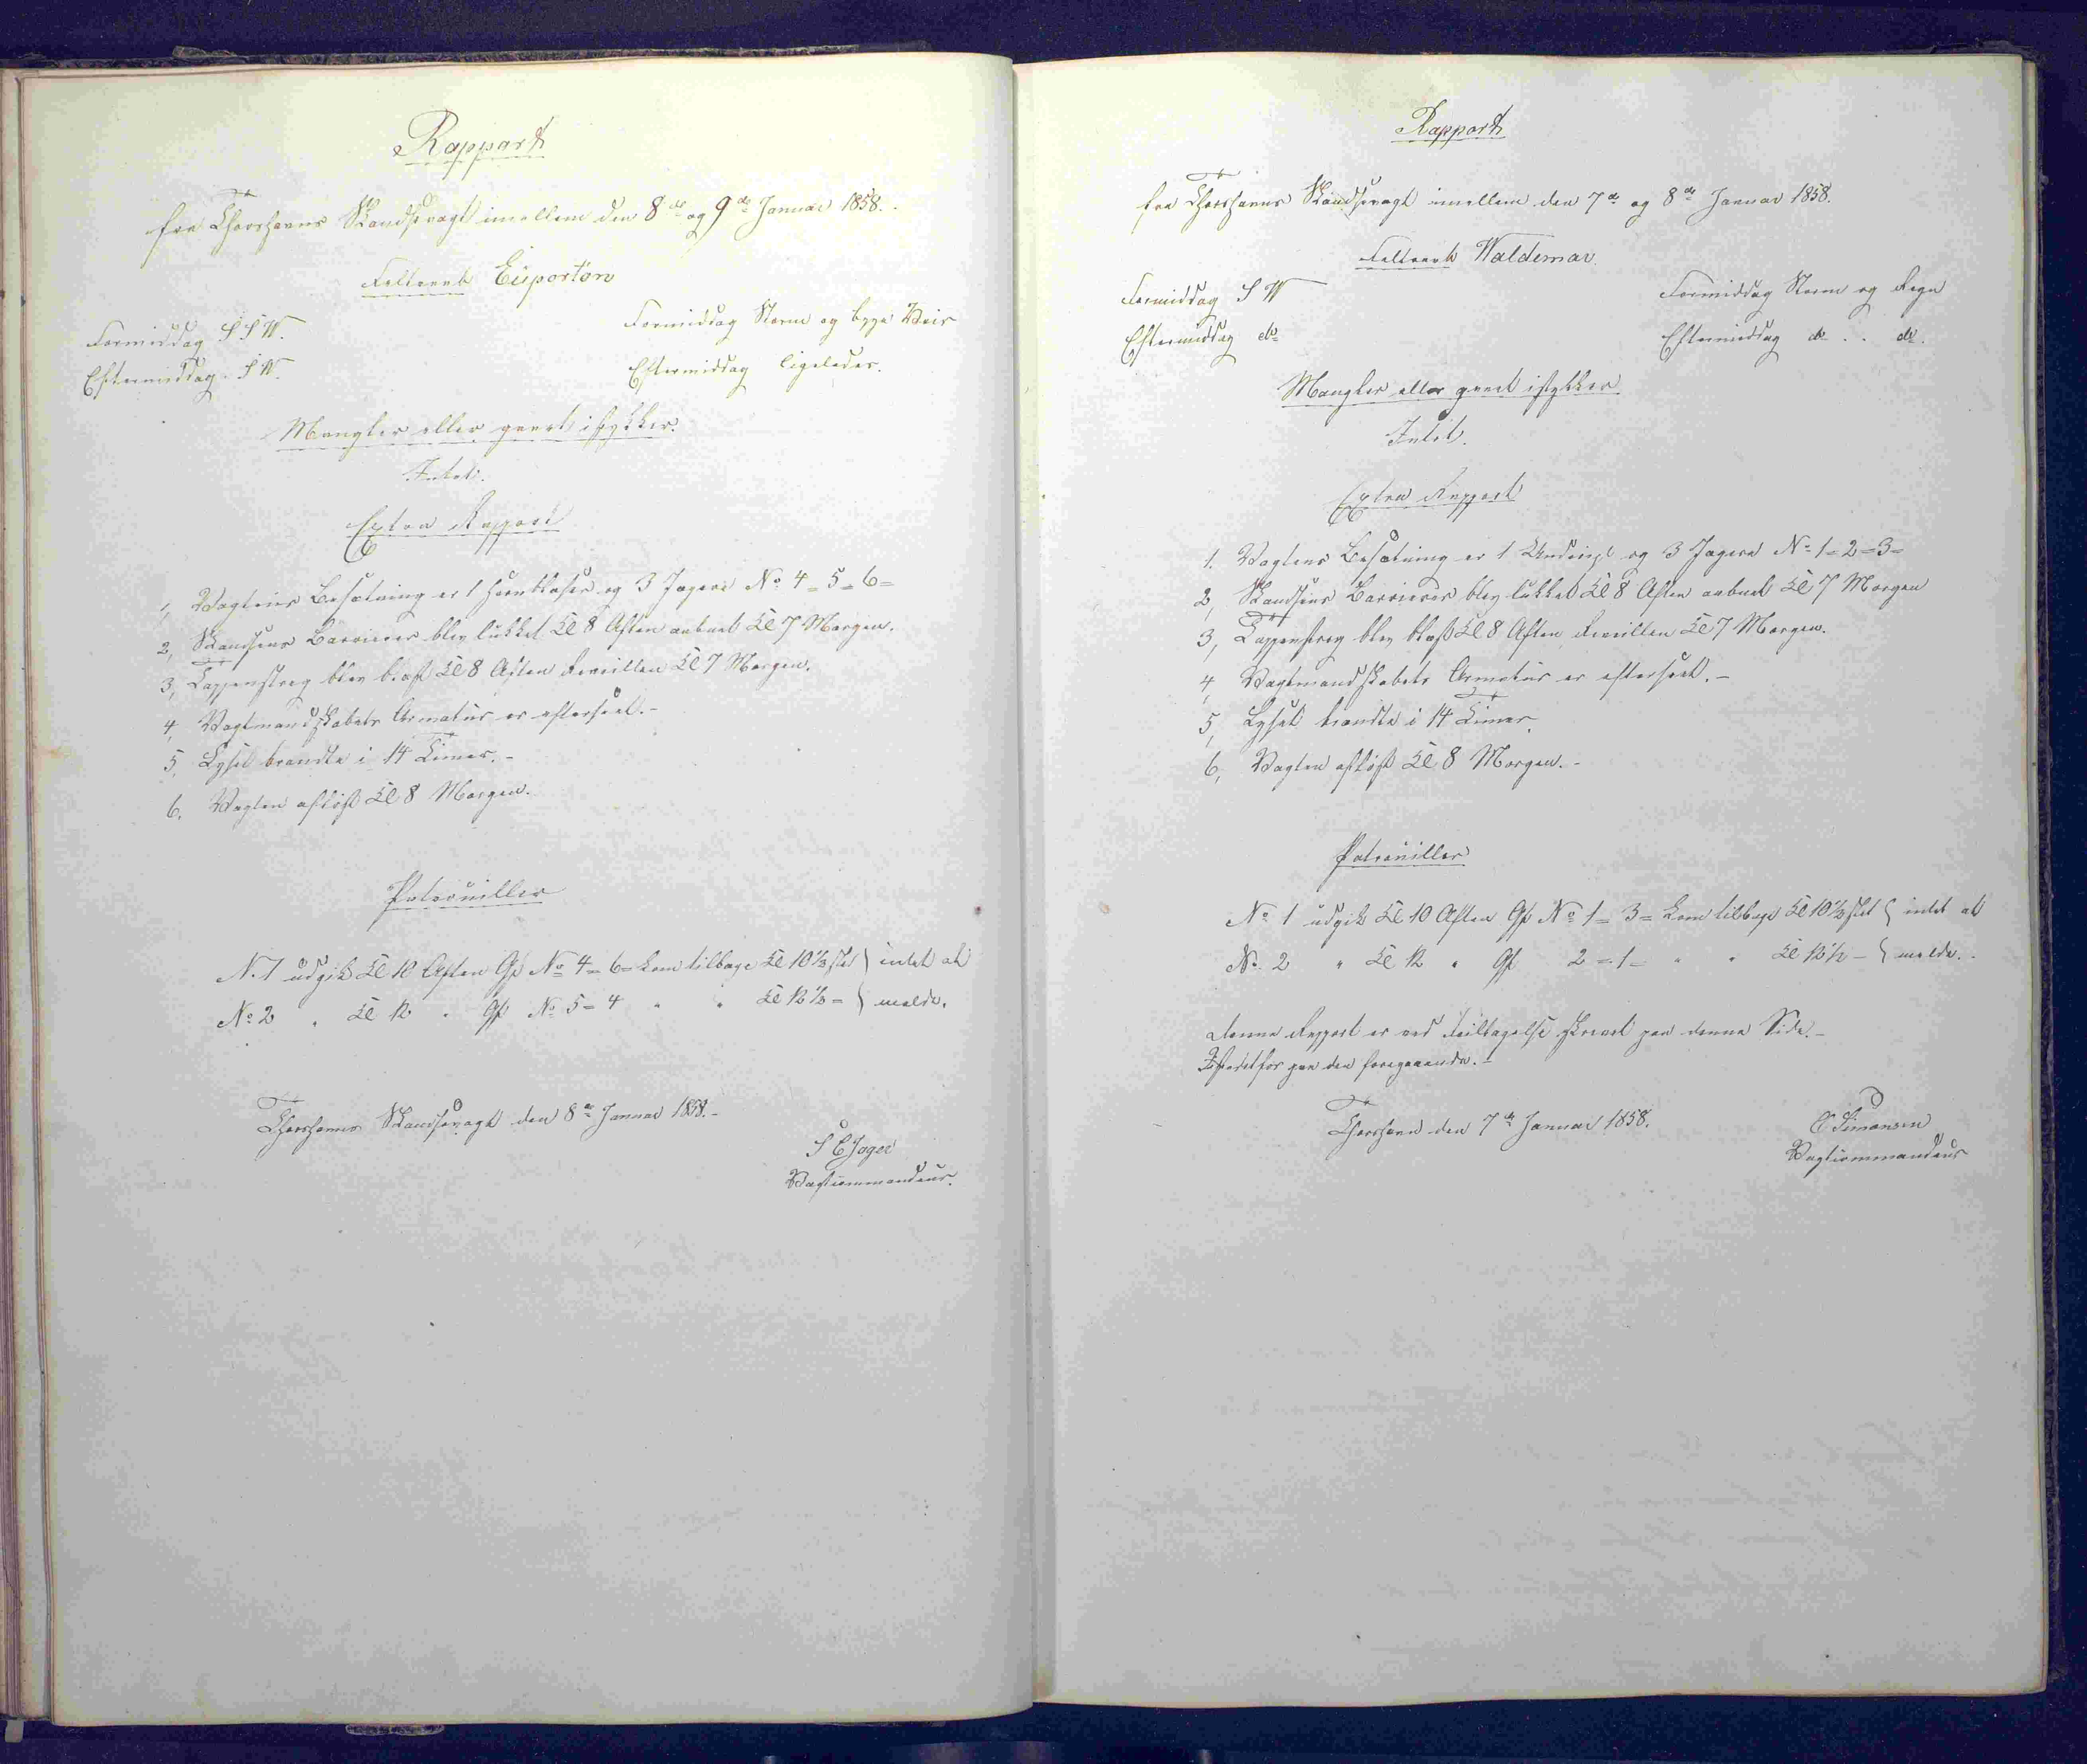 Rapport
fra Thorshavns Skandsevagt imellem den 8de og 9de Januar 1858.
Feltraab Eüportön
Formiddag S S W.
Formiddag Storm og byge Veir
Eftermiddag. S W.
Eftermiddag ligeledes.
Mangler eller gaaet istykker.
Intet.
Extra Rapport
1, Vagtens Besætning er 1 Hornblæser og 3 Jægere No 4 = 5 = 6 =
2, Skandsens Barrierer blev lukket Kl 8 Aften aabnet Kl 7 Morgen.
3, Tappenstreg blev blæst Kl 8 Aften Reveillen Kl 7 Morgen.
4, Vagtmandskabets Armatur er efterseet. -
5, Lyset brændte i 14 Timer. -
6, Vagten afløst Kl 8 Morgen.
Patrouiller
N. 1 udgik Kl 10 Aften Gf No 4 = 6 = kom tilbage Kl 10½ slet } intet at
No 2 " Kl 12 " Gf No 5 = 4 " " Kl 12½ = } melde.
Thorshavns Skandsevagt den 8de Januar 1858. -
S C Jager
Vagtcommandeur.
Rapport
fra Thorshavns Skandsevagt imellem den 7de og 8de Januar 1858.
Feltraab Waldemar.
Formiddag S W
Formiddag Storm og Regn
Eftermiddag do
Eftermiddag do . . do.
Mangler eller gaaet istykker
Intet.
Extra Rapport
1. Vagtens Besætning er 1 Underof og 3 Jægere No 1 = 2 = 3 =
2, Skandsens Barrierer blev lukket Kl 8 Aften aabnet Kl 7 Morgen
3, Tappenstreg blev blæst Kl 8 Aften Reveillen Kl 7 Morgen.
4, Vagtmandskabets Armatur er efterseet. -
5, Lyset brændte i 14 Timer.
6, Vagten afløst Kl 8 Morgen. -
Patrouiller
No 1 udgik Kl 10 Aften Gf No 1 = 3 = kom tilbage Kl 10½ slet } intet at
No. 2 " Kl 12 " Gf 2 = 1 = " " Kl 12½ - } melde.
Denne Rapport er ved Feiltagelse skrevet paa denne Side. -
Istedetfor paa den foregaaende. -
Thorshavn den 7de Januar 1858.
C Simonsen
Vagtcommandeur